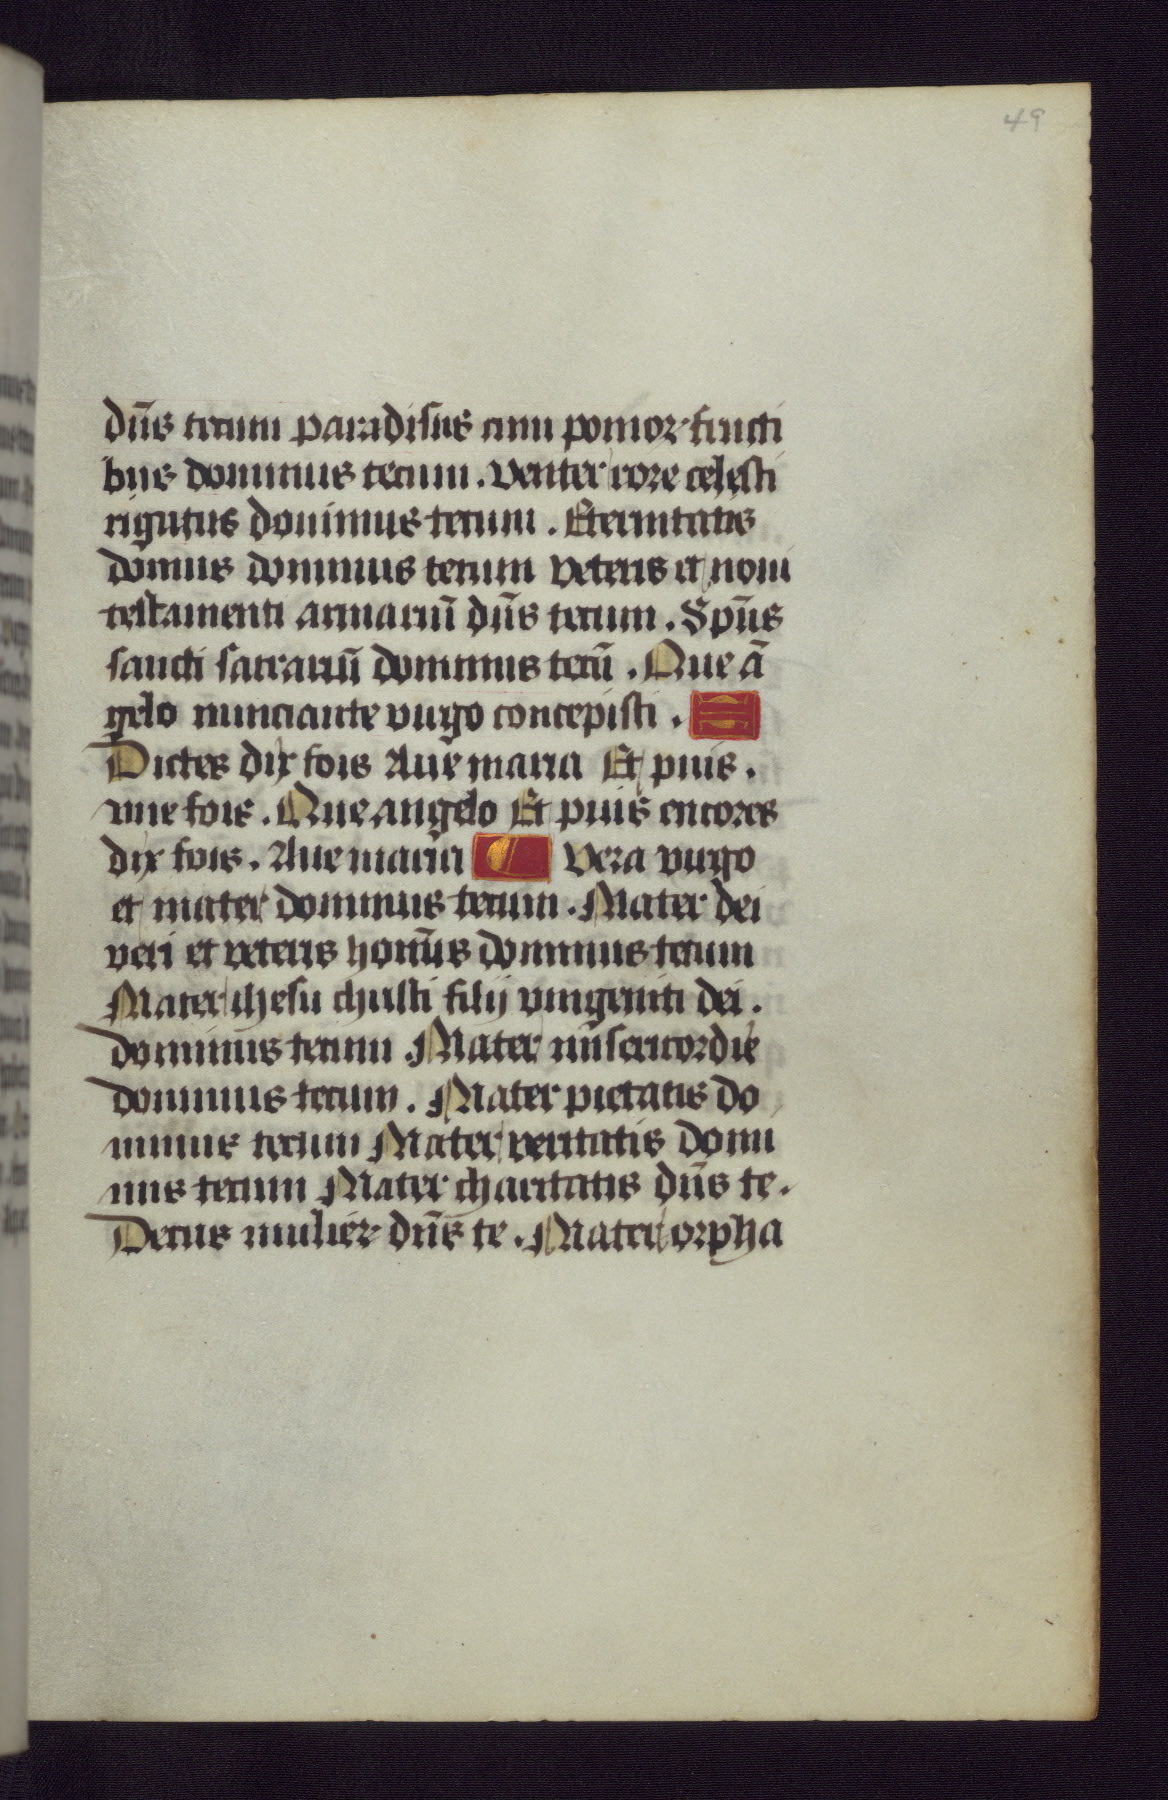 49
dn̄s tecum paradisus cum pomoꝝ fructi
bus dominus tecum. Venter rore celesti
rigatus dominus tecum. Eternitatis
domus dominus tecum veteris et noui
testamenti armariū dn̄s tecum. Spūs
sancti sacrariū dominus tecū. Que ā
gelo nunciante virgo concepisti.
Dictes dix fois Aue maria Et puis.
vne fois. Que angelo Et puis encores
dix fois. Aue maria Vera virgo
et mater dominus tecum. Mater dei
veri et veteris hom̄s dominus tecum
Mater ihesu christi filij vnigeniti dei.
dominus tecum. Mater misericordie
dominus tecum. Mater pietatis do
minus tecum Mater veritatis domi
nus tecum Mater charitatis dn̄s te.
Decus mulieꝝ dn̄s te. Mater orpha